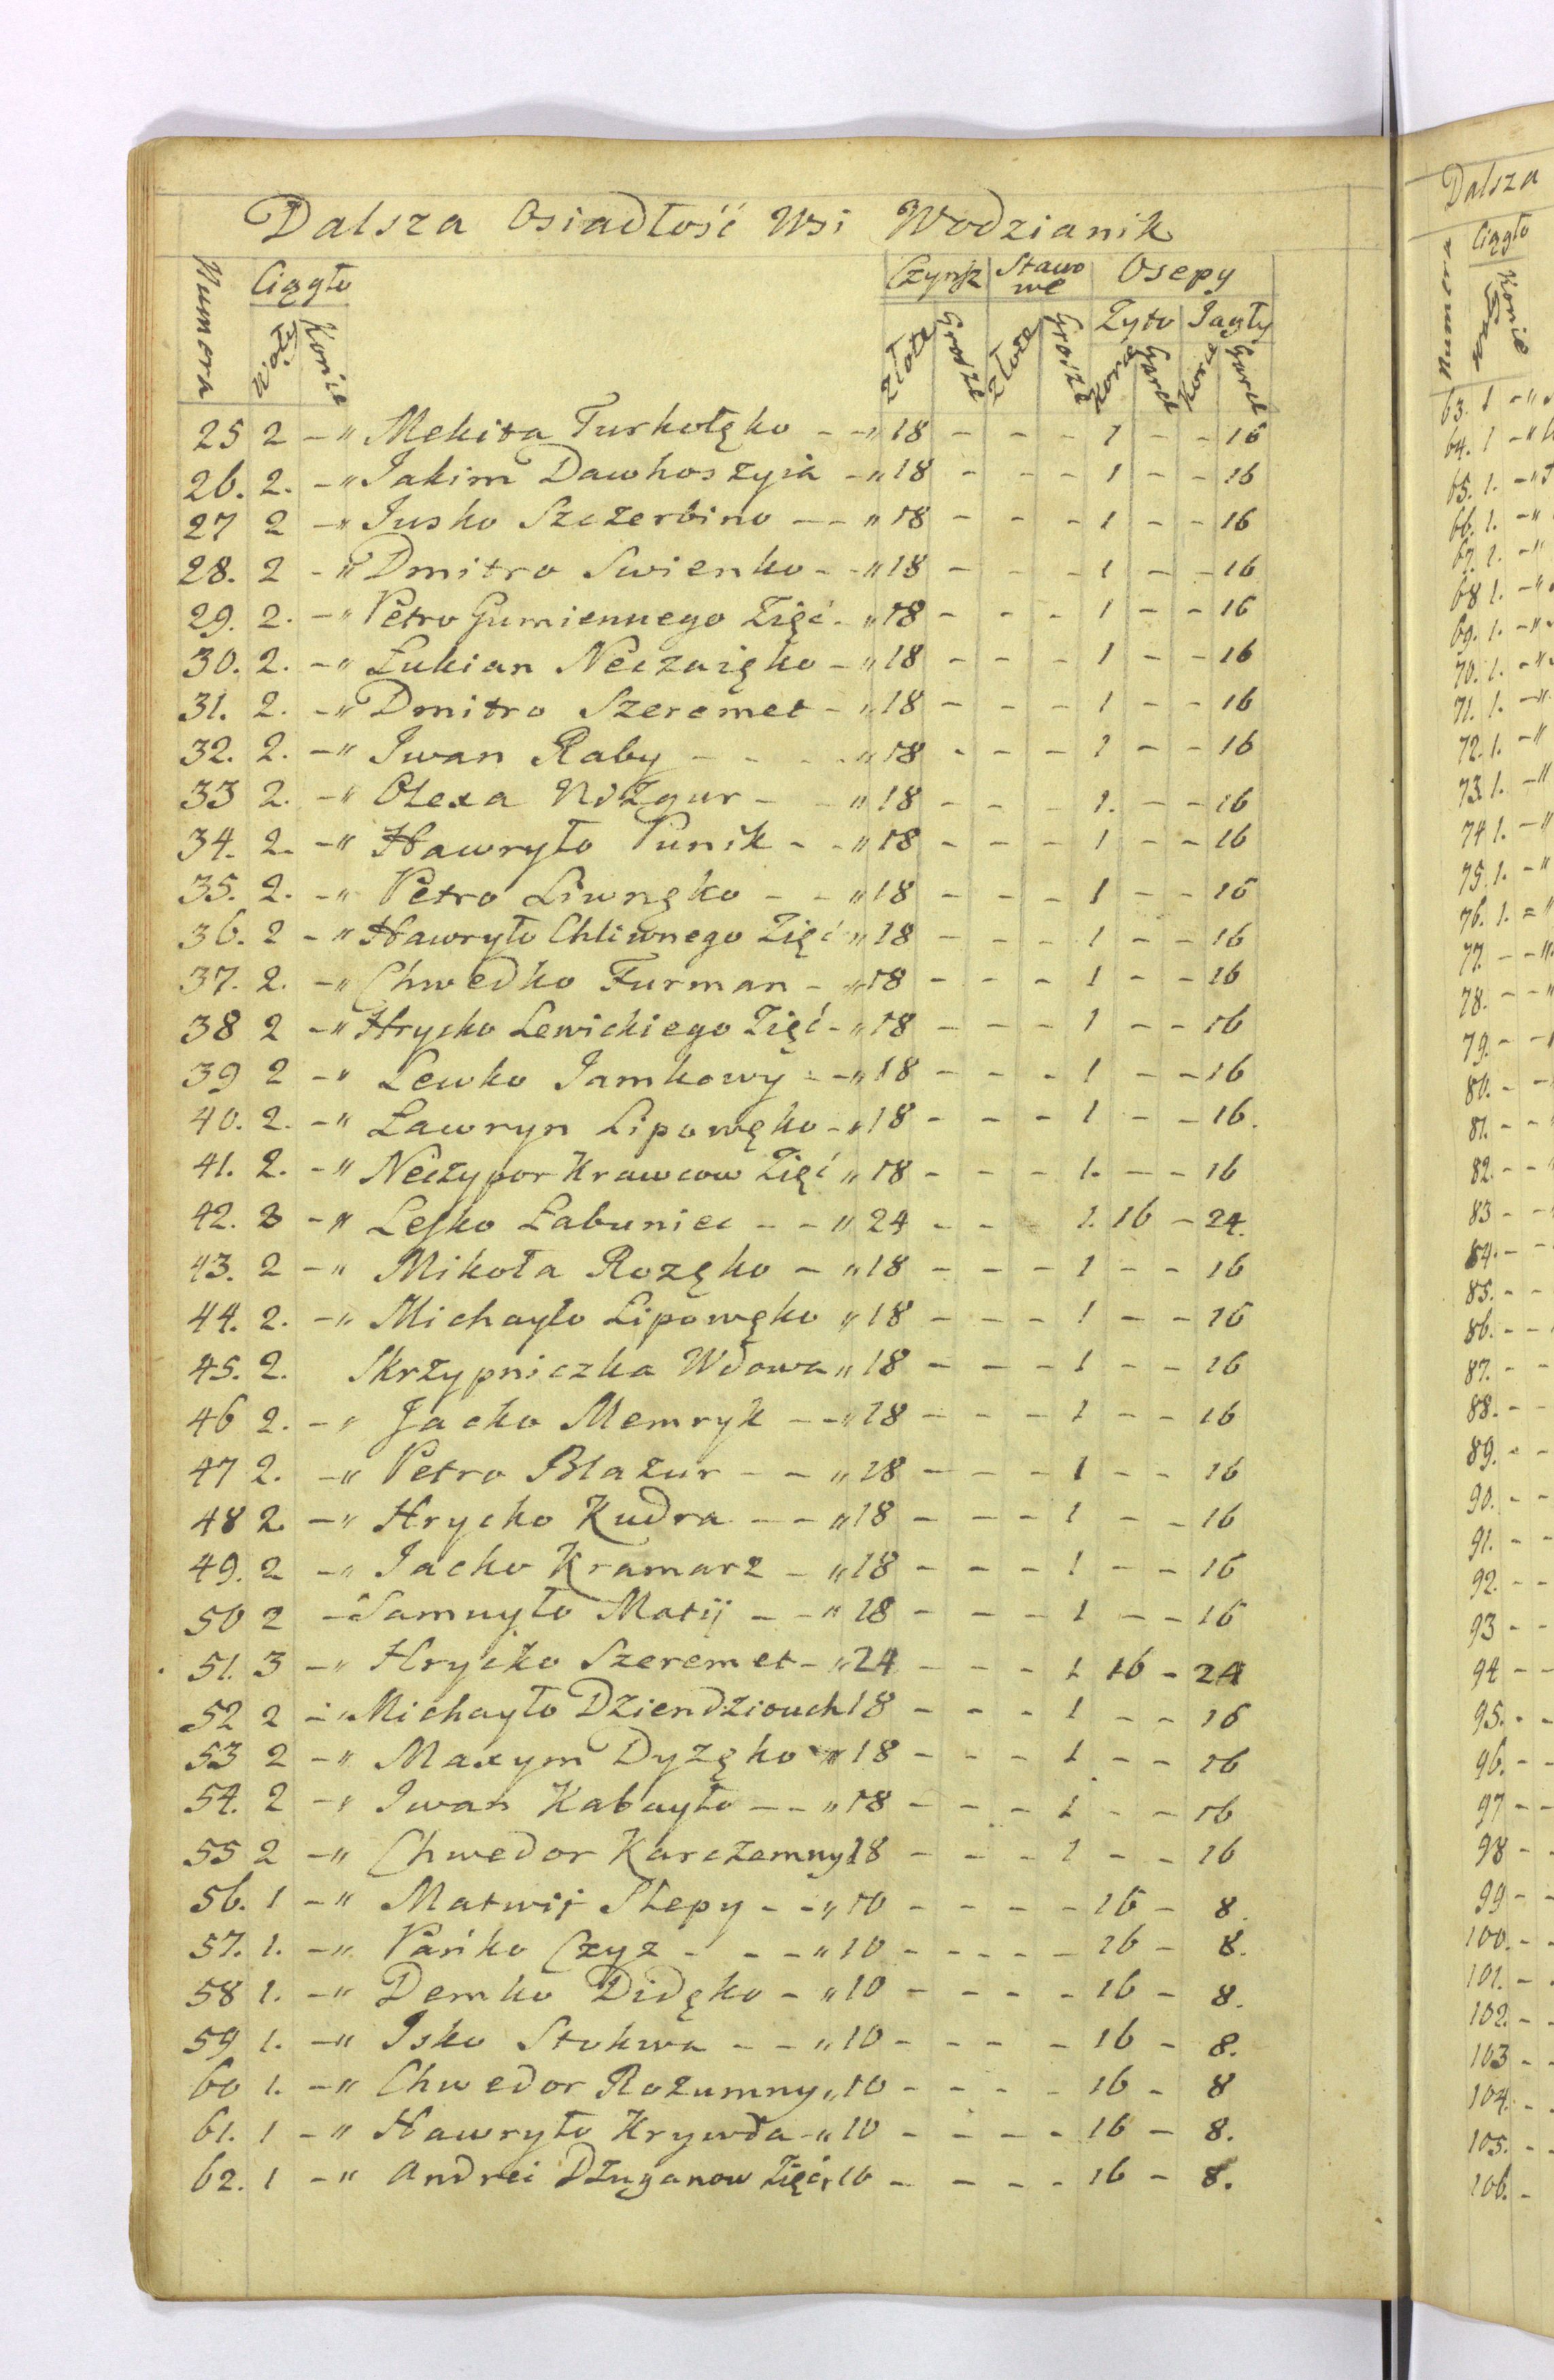 Dalsza Osiadłość Wsi Wodzianik
Numera Ciągło Czynsz Stawowe Osepy
Konie Złote Grosze Złote Grosze Żyto Jagły
25 2 - " Mekita Turkotęko - - " 18 - - - 1 - - 16
26. 2. - " Jakim Dawhoszyia - " 18 - - - 1 - - 16
27 2 - " Jusko Szczerbino - - " 18 - - - 1 - - 16
28. 2 - " Dmitro Swienko - - " 18 - - - 1 - - 16
29. 2. - " Petro Gumiennego Zięć - " 18 - - - 1 - - 16
30. 2. - " Łukian Neczaięko - " 18 - - - 1 - - 16
31. 2. - " Dmitro Szeremet - " 18 - - - 1 - - 16
32. 2. - " Iwan Raby - - - - " 18 - - - 1 - - 16
33 2. - " Olexa - - " 18 - - - 1. - - 16
34. 2. - " Hawryło Punik - - " 18 - - - 1 - - 16
35. 2. - " Petro Liwnęko - - " 18 - - - 1 - - 16
36. 2 - " Hawryło Chliwnego Zięć " 18 - - - 1 - - 16
37. 2. - " Chwedko Furman - " 18 - - - 1 - - 16
38 2 - " Hrycko Lewickiego Zięć - " 18 - - - 1 - - 16
39 2 - " Lewko Jamkowy - - " 18 - - - 1 - - 16
40. 2. - " Ławryn Lipowęko - " 18 - - - 1 - - 16.
41. 2. - " Neczypor Krawcow Zięć " 18 - - - 1. - - 16
42. 3 - " Leſko Łabuniec - - " 24 - - 1. 16 - 24.
43. 2 - " Mikoła Rozęko - " 18 - - - 1 - - 16
44. 2. - " Michayło Lipowęko " 18 - - - 1 - - 16
45. 2. Skrzypniczka Wdowa " 18 - - - 1 - - 16
46 2. - " Jacko Memryk - - " 18 - - - 1 - - 16
47 2. - " Petro Blazur - - " 18 - - - 1 - - 16
48 2 - " Hrycko Kudra - - " 18 - - - 1 - - 16
49. 2 - " Jacko Kramarz - " 18 - - - 1 - - 16
50 2 - Samuyło Matij - - " 18 - - - 1 - - 16
51. 3 - " Hrycko Szeremet - " 24 - - - 1 16 - 24
52 2 - " Michayło Dziendziouch 18 - - - 1 - - 16
53 2 - " Maxym Dyzęko " 18 - - - 1 - - 16
54. 2 - " Iwan Kabayło - - " 18 - - - 1 - - 16
55 2 - " Chwedor Karczemny 18 - - - 1 - - 16
56. 1 - " Matwij Slepy - - " 10 - - - - 16 - 8.
57. 1. - " Pańko Czyz - - - " 10 - - - - - 16 - 8.
58 1. - " Demko Didęko - " 10 - - - - 16 - 8.
59 1. - " Jsko Stokwa - - " 10 - - - - 16 - 8.
60 1. - " Chwedor Rozumny " 10 - - - - 16 - 8
61. 1 - " Hawryło Krywda - " 10 - - - - 16 - 8.
62. 1 - " Andrei Dzuganow Zięć " 10 - - - - 16 - 8.
Dalsza
Ciągło
Konie
63. 1 - "
64. 1 - "
65. 1. - "
66. 1. - "
67. 1. - "
68 1. - "
69. 1. - "
70. 1. - "
71. 1. - "
72. 1. - "
73. 1. - "
74 1. - "
75. 1. - "
76. 1. = "
77. - - "
78. - - "
79. - -
80. - -
81. - -
82. - -
83 - -
84. - -
85. - -
86. - -
87. - -
88. - -
89. - -
90. - -
91. - -
92. - -
93 - -
94 - -
95. - -
96. - -
97 - -
98 -
99 - -
100. - -
101. -
102. - -
103 -
104. -
105. -
106. -